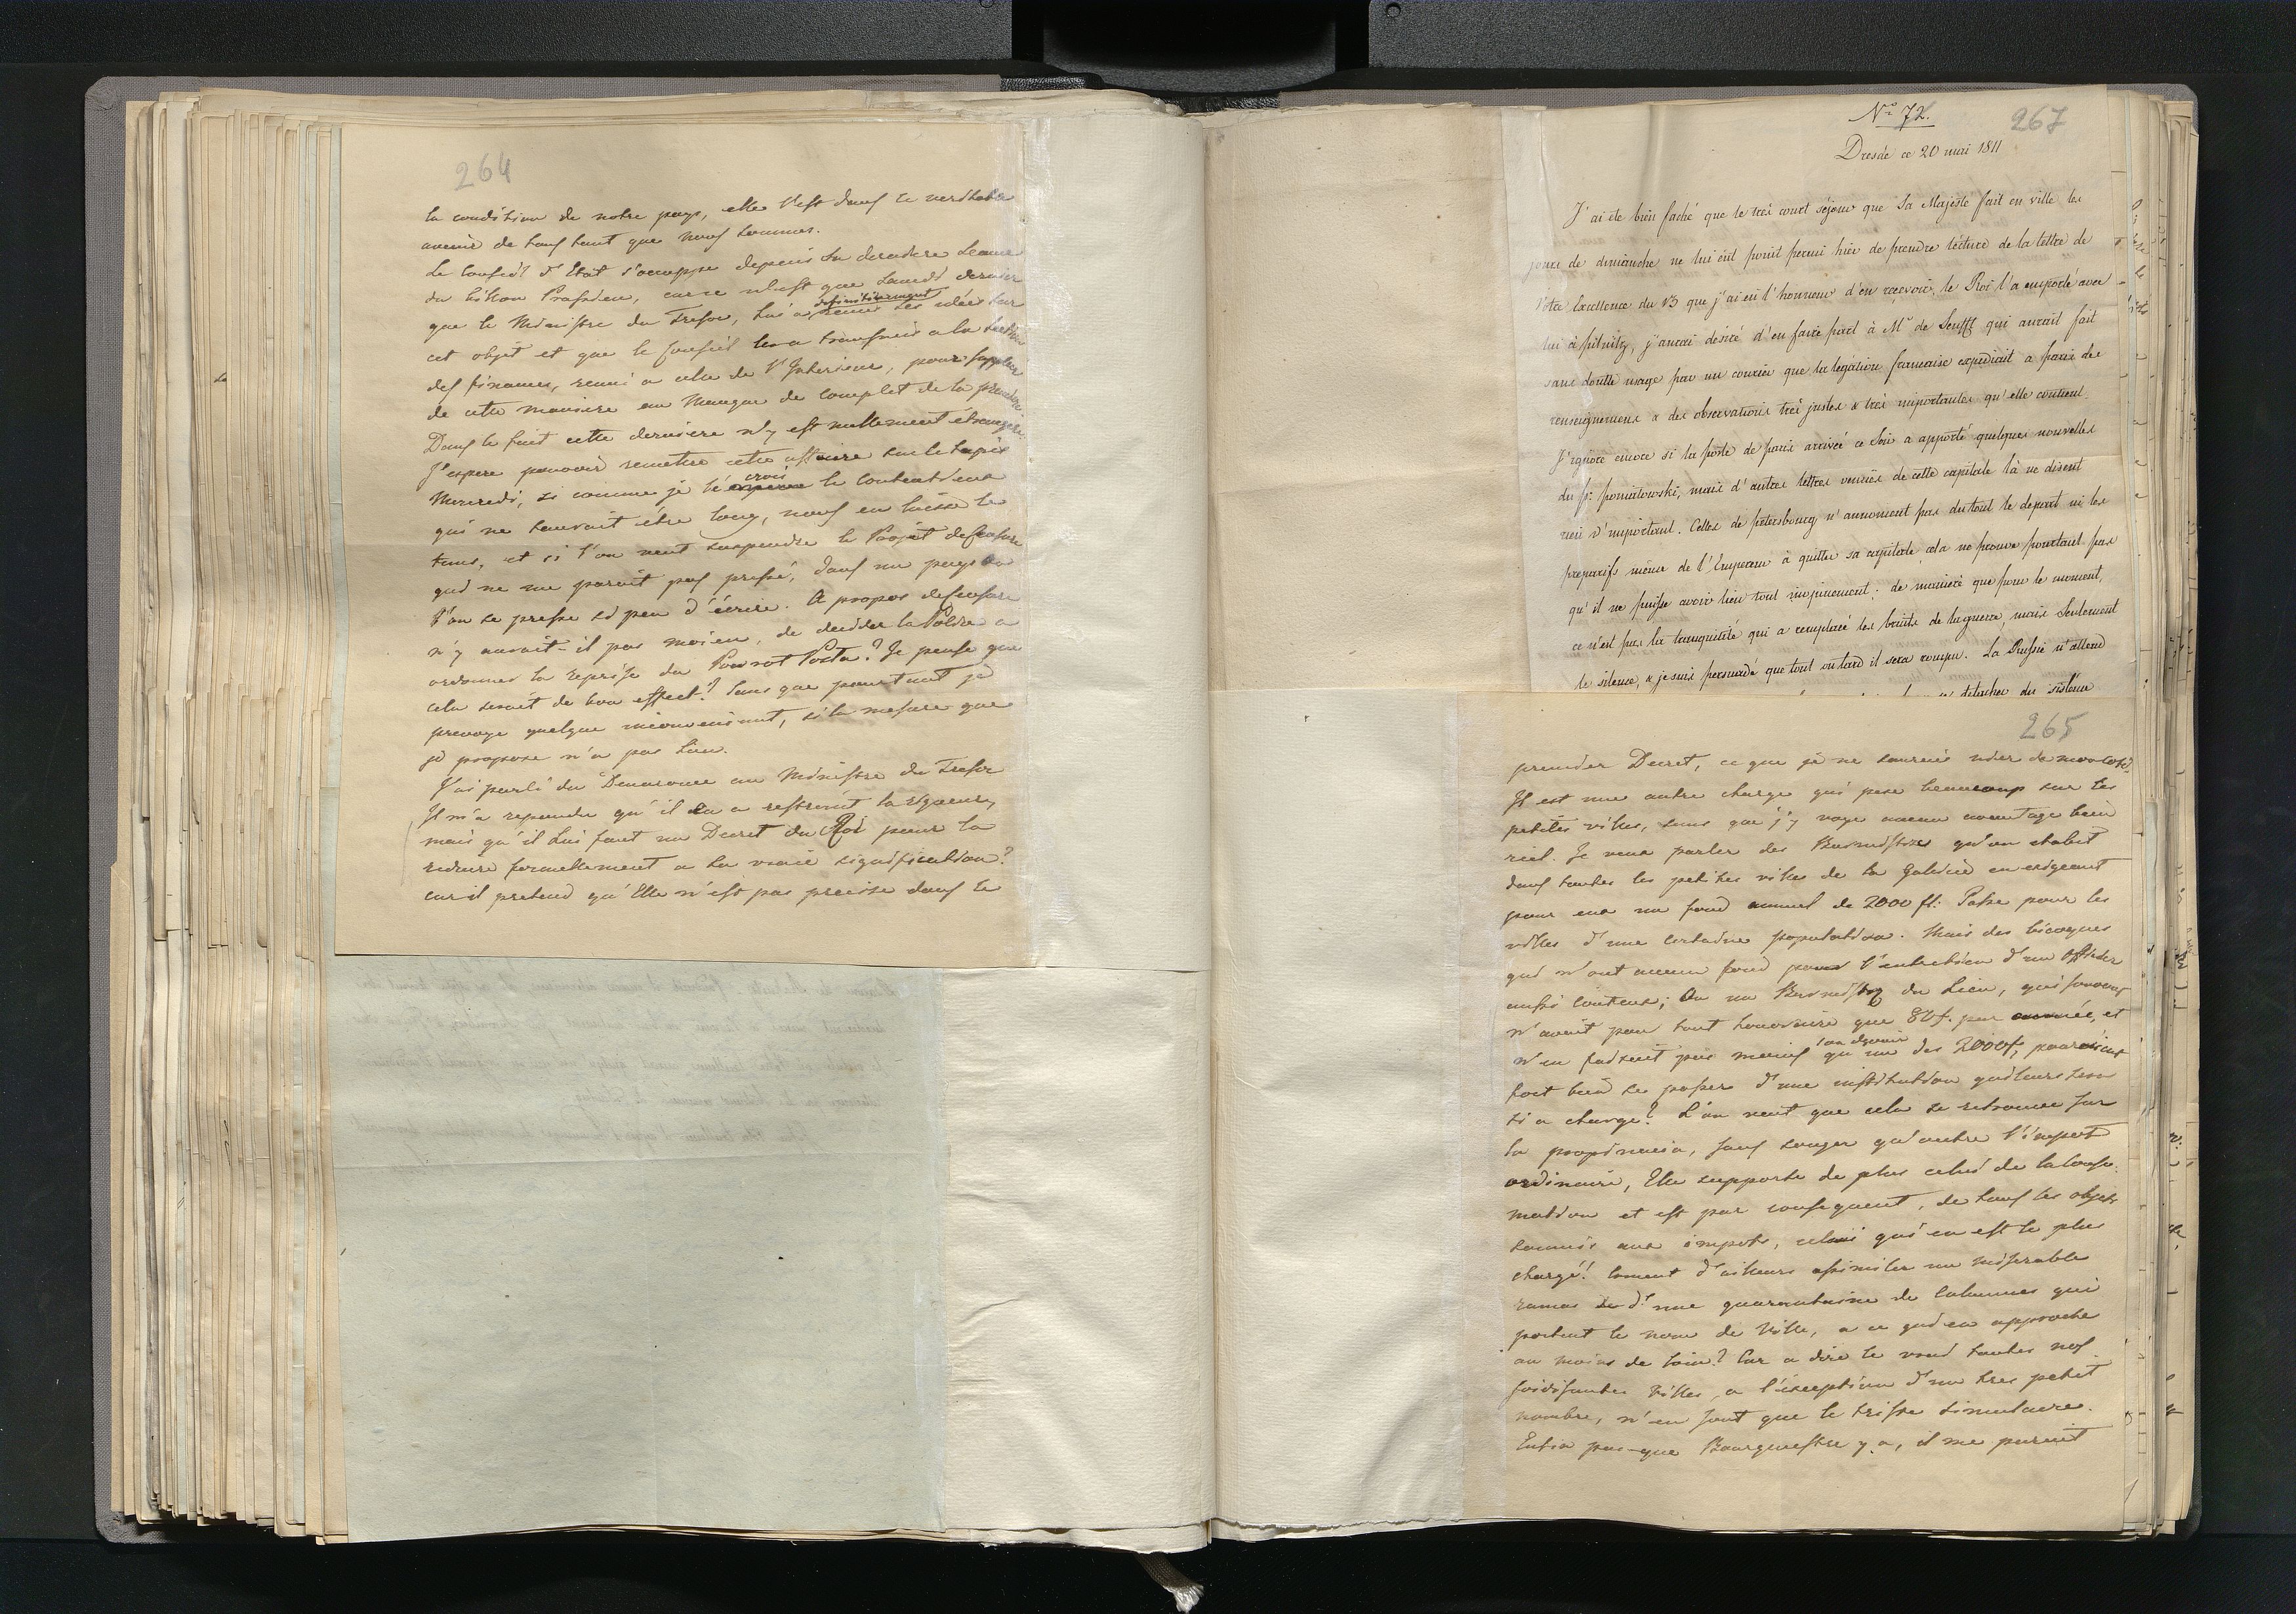 264
la condition de notre pays, elle l'est dans le veritable
avenir de tous tant que nous sommes.
Le Conseil d'Etat s'occuppe depuis sa derniere Seance
du billon Prussien, car ce n'est que Lundi dernier
que le Ministre du Tresor, lui a remis ses idées sur
definitivement
cet objet et que le Conseil les a transmis a la Section
des finances, reuni a celle de l'Interieur, pour suppleer
de cette maniere au Manque de complet de la premiere
Dans le fait cette derniere n'y est nullement étrangere
J'espere pouvoir remettre cette affaire sur le tapis
crois
Mercredi, si comme je le le Contentieux
qui ne sauroit être long, nous en laisse le
tems, et si l'on veut suspendre le Projet de censure
qui ne me paroit pas pressé, dans un pays ou
l'on se presse si peu d'écrire. A propos de censure
n'y auroit-il pas moien, de decider la Police a
ordonner la reprise du Powrot Posta? Je pense que
cela seroit de bon effect? sans que pourtant je
prevoye quelque inconvenient, si la mesure que
je propose n'a pas lieu.
J'ai parlé du au Ministre du Tresor
Il m'a repondu qu'il en a restreint la rigueur,
mais qu'il lui faut un Decret du Roi pour la
reduire formellement a sa vraie signification?
car il pretend qu'Elle n'est pas precise dans le
No 72.
267
Dresde ce 20 mai 1811
J'ai été bien faché que le très court séjour que Sa Majesté fait en ville les
jours de dimanche ne lui eut point permi hier de prendre lecture de la lettre de
Votre Excellence du 13 que j'ai eu l'honneur d'en recevoir, le Roi l'a emporté avec
lui à pilnitz, j'aurai désiré d'en faire part à Mr de Senfft qui aurait fait
sans doutte usage par un courier que la légation francaise expediait a paris des
renseignemens & des observations très justes & très importantes qu'elle contient.
J'ignore encore si la poste de paris arrivée ce soir a apporté quelques nouvelles
du pce poniatowski, mais d'autres lettres venues de cette capitale là ne disent
rien d'important. Celles de petersbourg n'annoncent pas du tout le depart ni les
preparifs même de l'Empereur à quitter sa capitale, cela ne prouve pourtant pas
qu'il ne puisse avoir lieu tout inopinement; de maniere que pour le moment,
ce n'est pas la tranquilité qui a remplacé les bruits de la guerre, mais seulement
le silence, & je suis persuadé que tout ou tard il sera rompu. La Russie n'attend
détacher du sistème
265
premier Decret, ce que je ne saurais nier de mon coté.
Il est une autre charge qui pese beaucoup sur les
petites villes, sans que j'y voye aucun avantage bien
riel. Je veux parler des Burmistrz qu'on etablit
dans toutes les petites villes de la Galicie en exigeant
pour eux un fond annuel de 2000 fl: Passe pour les
villes d'une certaine population. Mais des bicoques
qui n'ont aucun fond pour l'entretien d'un Officier
aussi couteux; Ou un Burmistrz du Lieu, qui souvent
n'avait pour tout honoraire que 80 f. par année, et
n'en faisait pas moins qu'un des 2000 f, pourroient
fort bien se passer d'une institution qui leurs sera
si a charge? L'on veut que cela se retrouve sur
la propinacia, sans songer qu'outre l'impot
ordinaire, Elle supporte de plus celui de la Conso-
mation et est par consequent, de tous les objets
soumis aux impots, celui qui en est le plus
chargé! Coment d'ailleurs assimiler un miserable
ramas d'une quarantaine de Cabannes qui
portent le nom de Ville, a ce qui en approche
au moins de loin? Car a dire le vrai toutes nos
soidisantes Villes, a l'exception d'un tres petit
nombre, n'en sont que le triste simulacre.
Enfin puis-que Bourgmestre y a, il me paroit